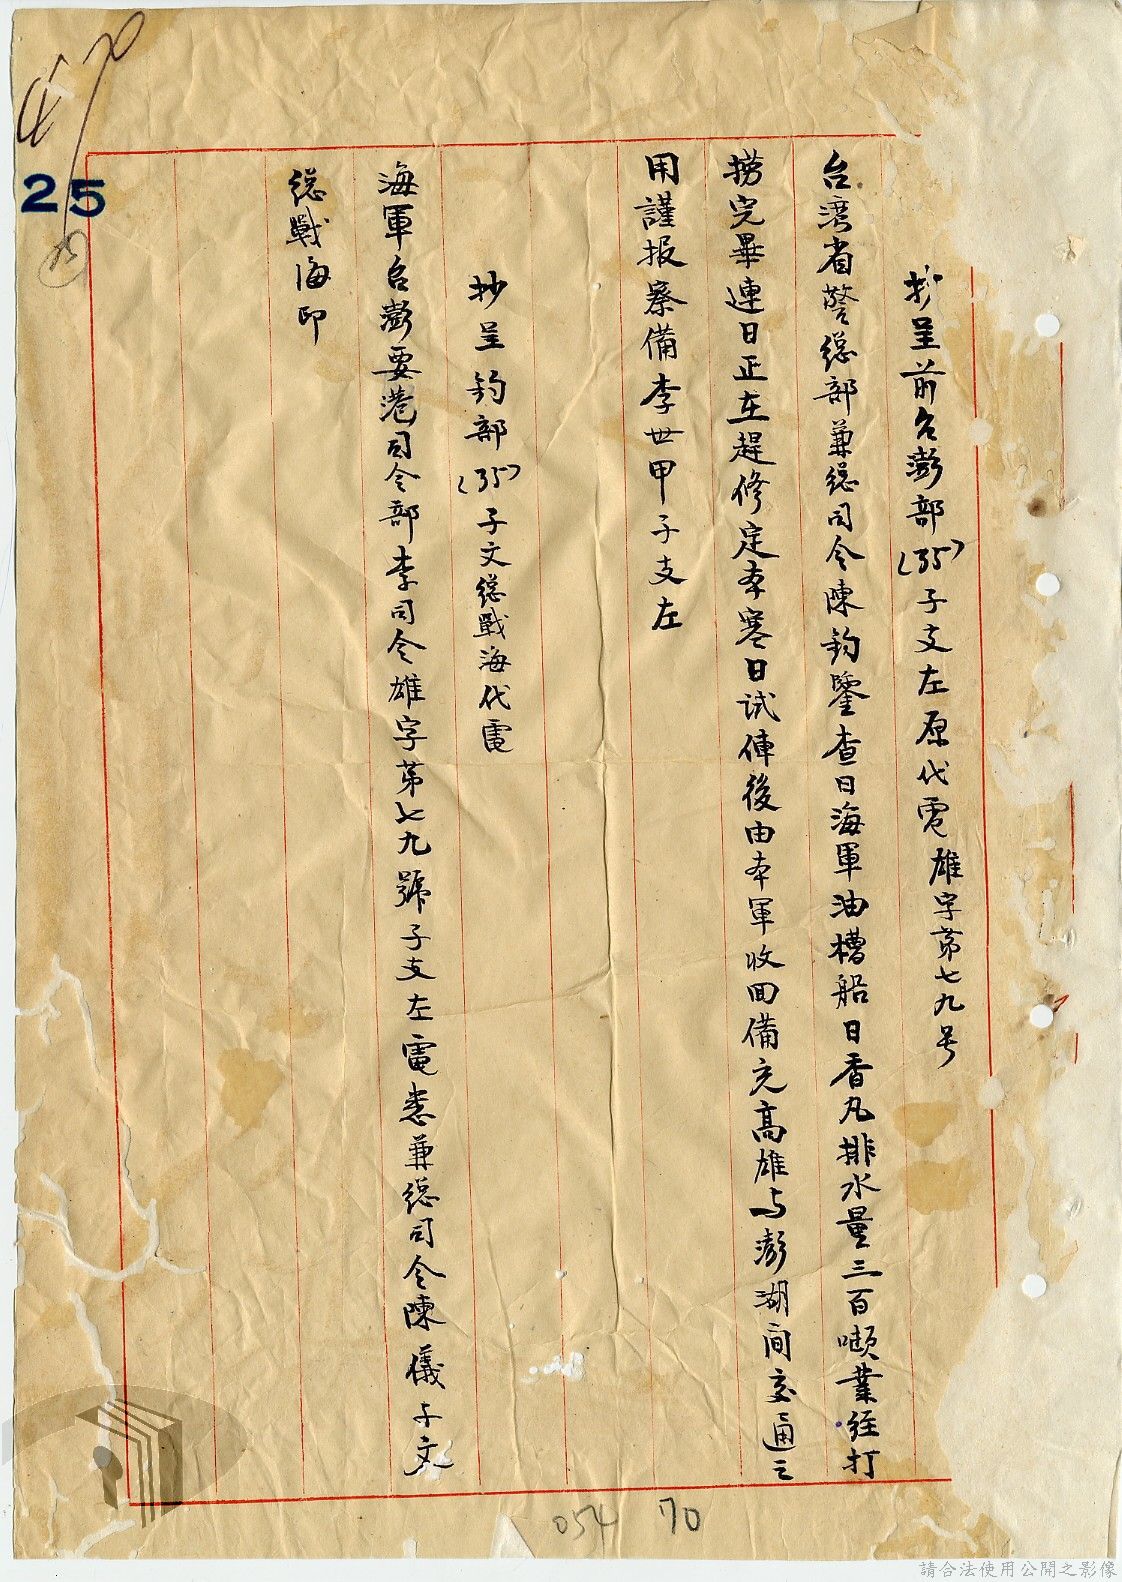 抄呈前台澎部(35)子支左原代電雄字第七九号
台湾省警總部兼總司令陳鈞鑒查日海軍油槽船日香丸排水量三百噸業經打
撈完畢連日正在趕修定本寒日試俥後由本軍收回備充高雄与澎湖間交通之
用謹报察備李世甲子支左
抄呈鈞部(35)子文總戰海代電
海軍台澎要港司令部李司令雄字第七九號子支左電悉兼總司令陳儀子文
總戰海印
25
054
70
請合法使用公開之影像